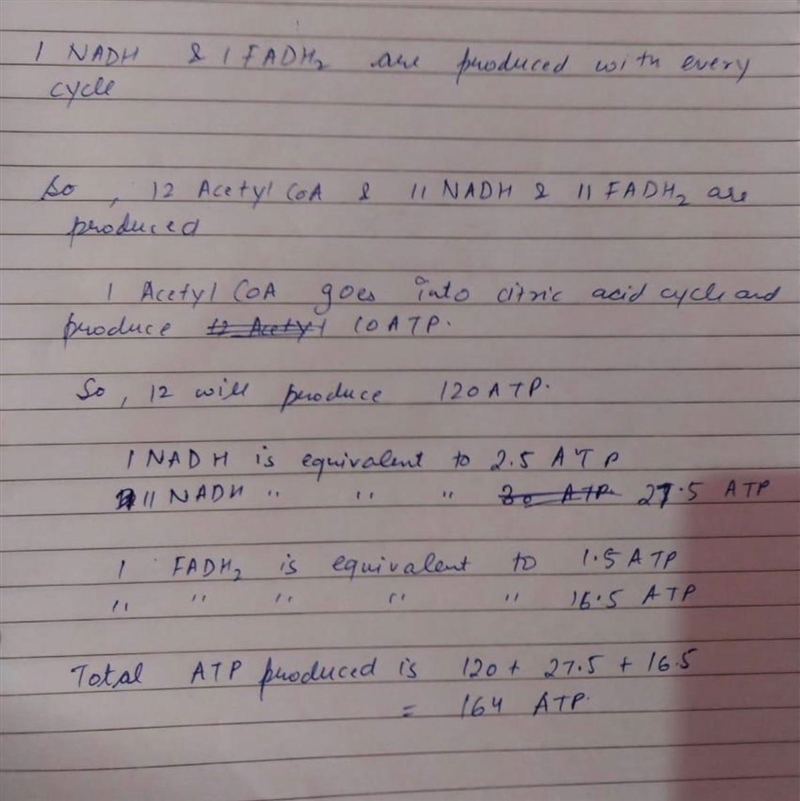 1 NADH & 1 FADH₂ are produced with every
cycle
So, 12 Acetyl CoA & 11 NADH & 11 FADH₂ are
produced
1 Acetyl CoA goes into citric acid cycle and
produce 12 Acetyl 10 ATP.
So, 12 will produce 120 ATP.
1 NADH is equivalent to 2.5 ATP
11 NADH " " " 30 ATP. 27.5 ATP
1 FADH₂ is equivalent to 1.5 ATP
11 " " " " 16.5 ATP
Total ATP produced is 120 + 27.5 + 16.5
= 164 ATP.